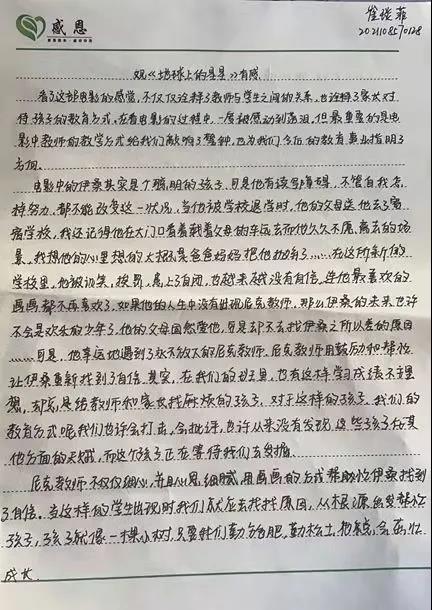 崔琰菲
202108570128
感恩
观《地球上的星星》有感
看了这部电影的感觉,不仅仅诠释了教师与学生之间的关系,也诠释了家长对
待孩子的教育方式,在看电影的过程中,一度被感动到落泪,但最重要的是电
影中教师的教学方式给我们敲响了警钟,也为我们今后的教育事业指明了
方向。
电影中的伊桑其实是个聪明的孩子,可是他有读写障碍,不管自我怎
样努力,都不能改变这一状况,当他被学校退学时,他的父母送他去了寄
宿学校,我还记得他在大门口看着载着父母的车远去而他久久不愿离去的场
景,我想他的心里想的大概是爸爸妈妈把他抛弃了……在这所新的
学校里,他被训笑,挨罚,患上了自闭,也越来越没有自信,连他最喜欢的
画画都不再喜欢了,如果他的人生中没有出现尼克教师,那么伊桑的未来也许
不会是欢乐的少年了,他的父母固然爱他,可是却不去找伊桑之所以差的原因
……可是,他幸运地遇到了永不放下的尼克教师,尼克教师用鼓励和帮忙
让伊桑重新找到了自信,其实,在我们的班里,也有这样学习成绩不理
想,却总是给教师和家长找麻烦的孩子,对于这样的孩子,我们的
教育方式呢我们也许会打击,会批评,也许从来没有发现,这些孩子在其
他方面的天赋,而这个孩子正在等待我们去发掘。
尼克教师不仅仅细心,并且心思细腻,用画画的方式帮助伊桑找到
了自信。当这样的学生出现时我们就应去找找原因,从根源出发帮忙
孩子,孩子就像一棵小树,只要我们勤劳施肥,勤松土,他就会茁壮
成长